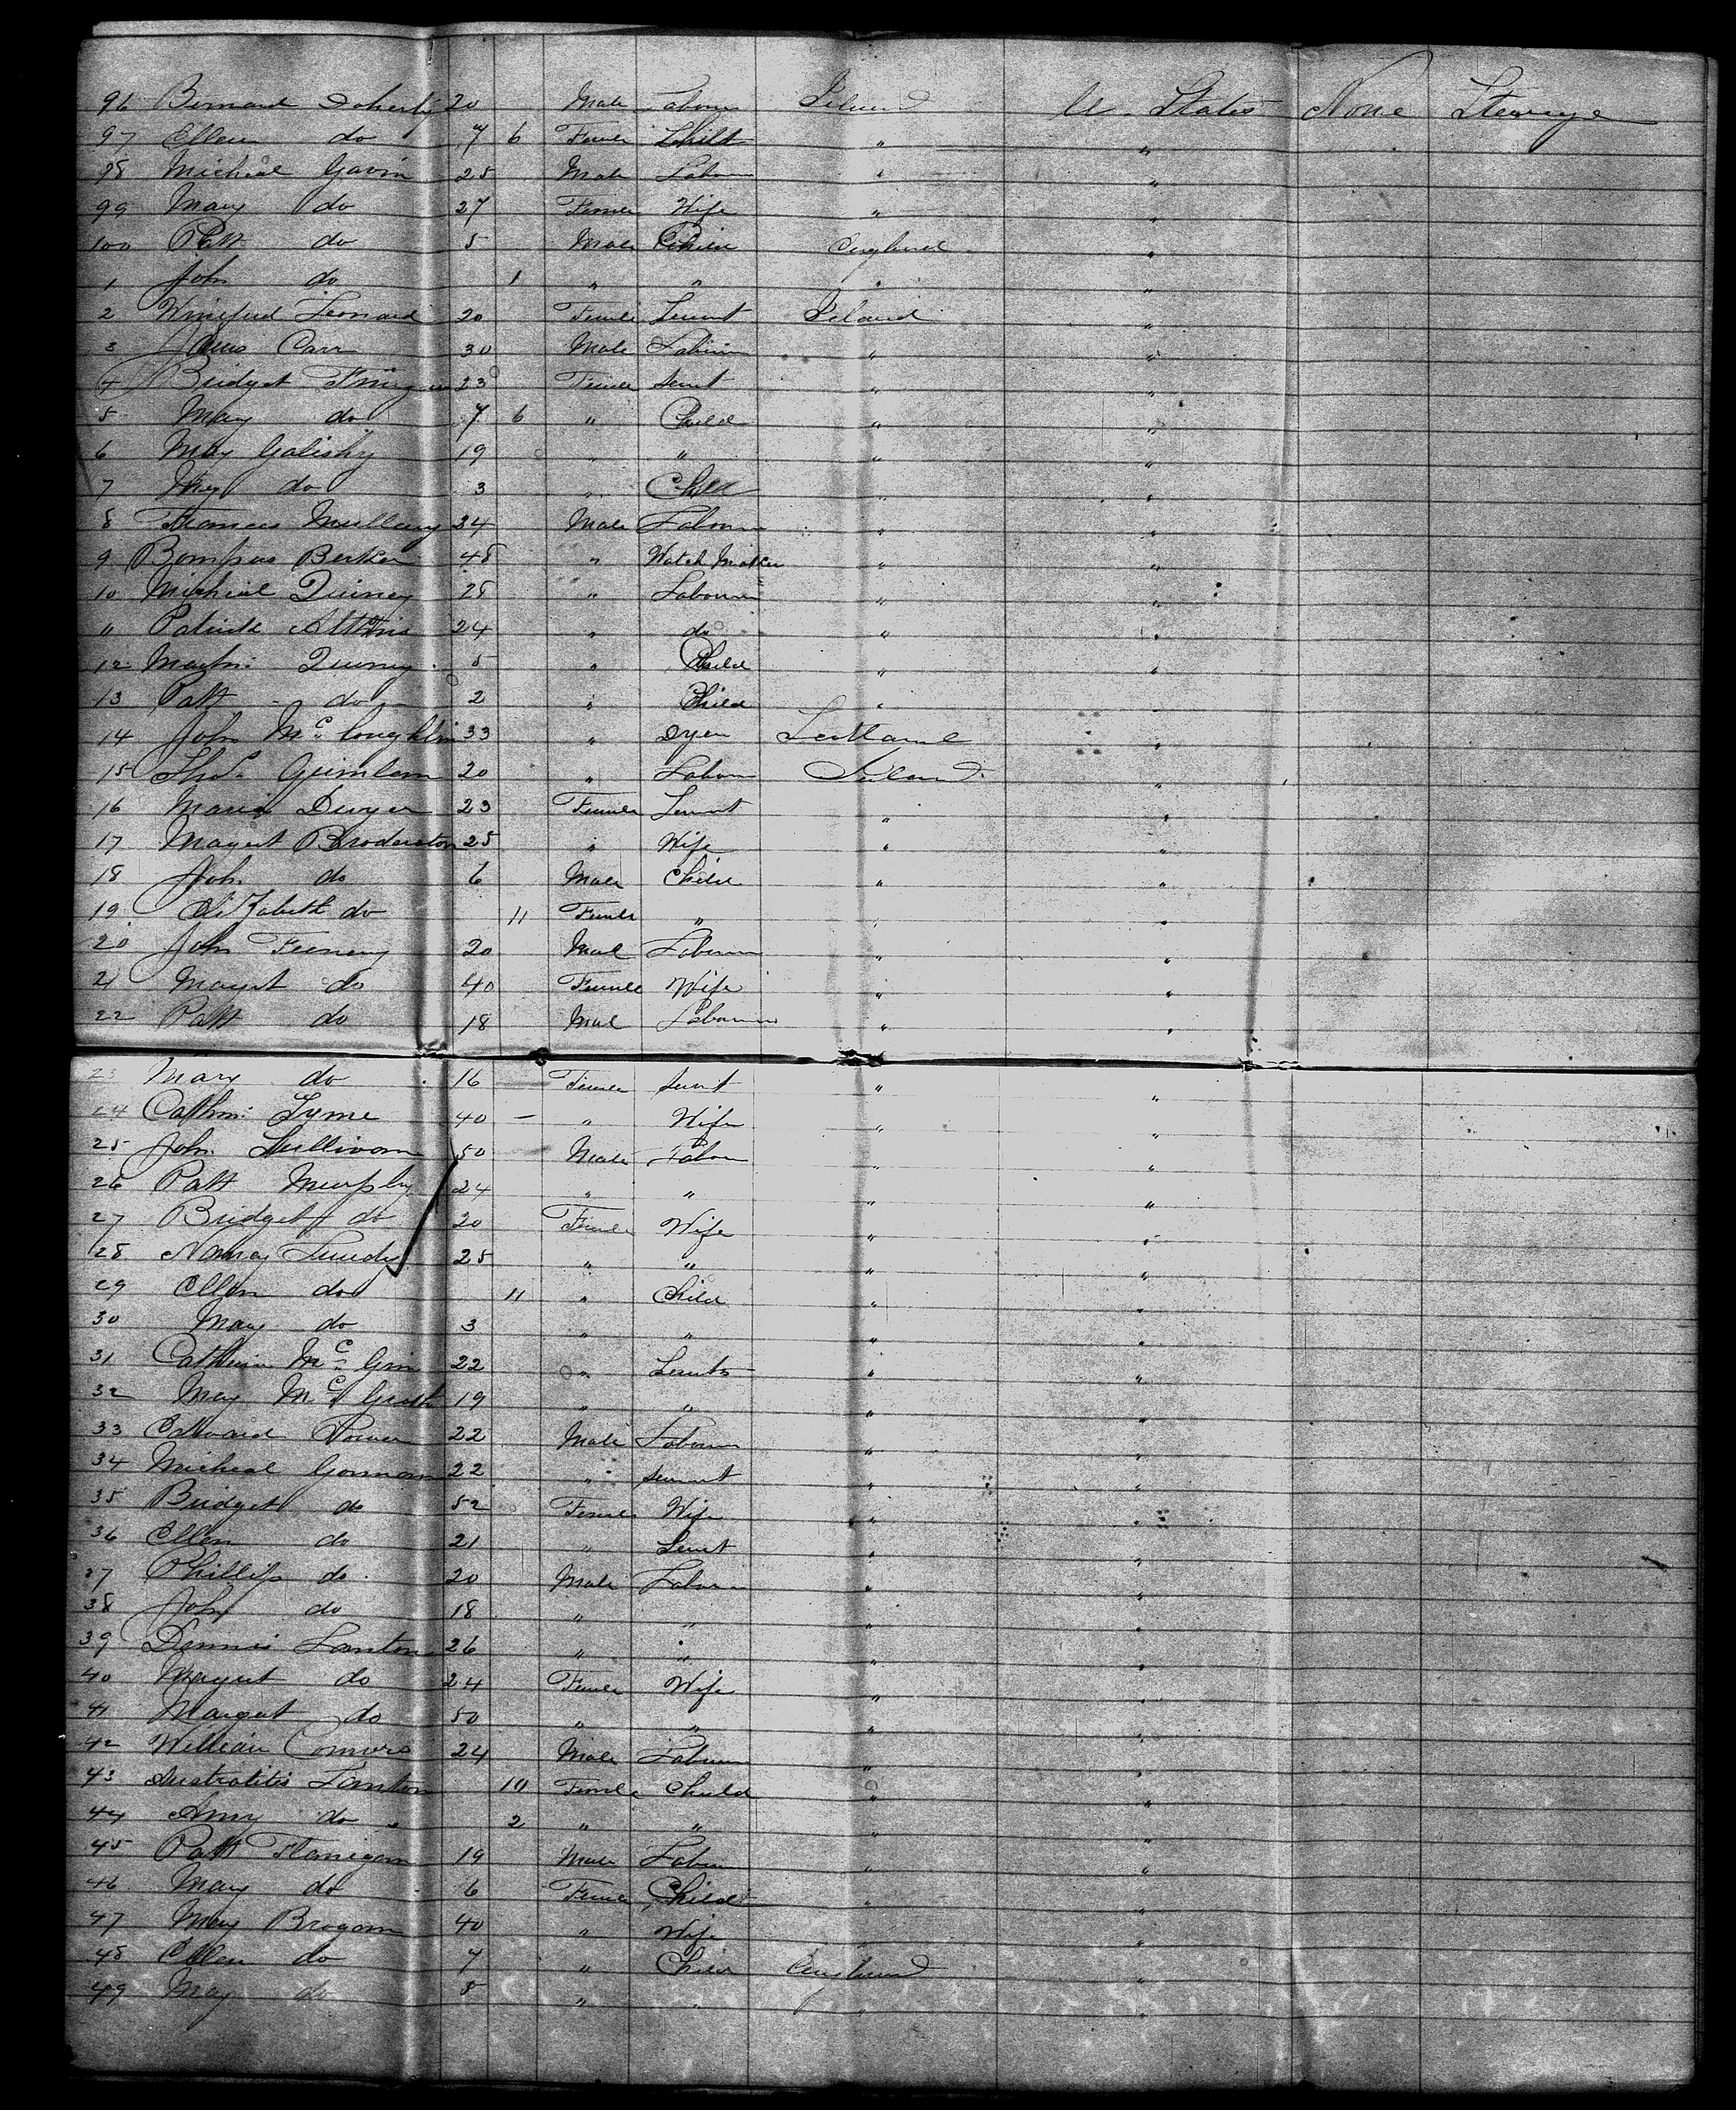 96 Bernard Doherty 20 Male Labour Ireland U. States None Steerage
97 Ellen do 7 6 Femle Child " "
98 Micheal Gavin 25 Male Labour " "
99 Mary do 27 Femle Wife " "
100 Patt do 5 Male Child England "
1 John do 1 " " " "
2 Winifred Leonard 20 Femle Servnt Ireland "
3 James Carr 30 Male Labour " "
4 Bridget 23 Femle Servt " "
5 Mary do 7 6 " Child " "
6 Mary 19 " " " "
7 do 3 " Child " "
8 Frances Mullany 34 Male Labour " "
9 Bompus Berker 48 " Watch Maker " "
10 Micheal Quiney 28 " Labourer " "
11 Patrick 24 " do " "
12 Martin Quiney 5 " Child " "
13 Patt do 2 " Child " "
14 John Mc Loughlin 33 " Dyer Scotland "
15 Thos. 20 " Labour Ireland "
16 Maria Dwyer 23 Femle Servnt " "
17 Magret Broderston 25 " Wife " "
18 John do 6 Male Child " "
19 Elizabeth do 11 Femle " " "
20 John Feeney 20 Mal Labourer " "
21 Magret do 40 Femle Wife " "
22 Patt do 18 Mal Labourer " "
23 Mary do 16 Femle Servnt " "
24 Cathn: Lyme 40 " Wife " "
25 John Sullivan 50 Male Labour " "
26 Patt Murphy 24 " " " "
27 Bridget do 20 Femle Wife " "
28 Nancy 25 " " " "
29 Ellen do 11 " Child " "
30 Mary do 3 " " " "
31 Catherin Mc 22 " Servnts " "
32 Mary Mc Grath 19 " " " "
33 Edward Power 22 Male Labour " "
34 Micheal Gorman 22 " Servnt " "
35 Bridget do 52 Femle Wife " "
36 Ellen do 21 " Servt " "
37 Phillip do 20 Male Labour " "
38 John do 18 " " " "
39 Dennis Lanton 26 " " " "
40 Magret do 24 Femle Wife " "
41 Margaret do 50 " " " "
42 William Connors 24 Male Labour " "
43 Lanton 10 Femle Child " "
44 Amy do 2 " " " "
45 Patt Flanigan 19 Male Labour " "
46 Mary do 6 Femle Child " "
47 Mary Brogan 40 " Wife " "
48 Ellen do 7 " Child England "
49 Mary do 5 " " " "